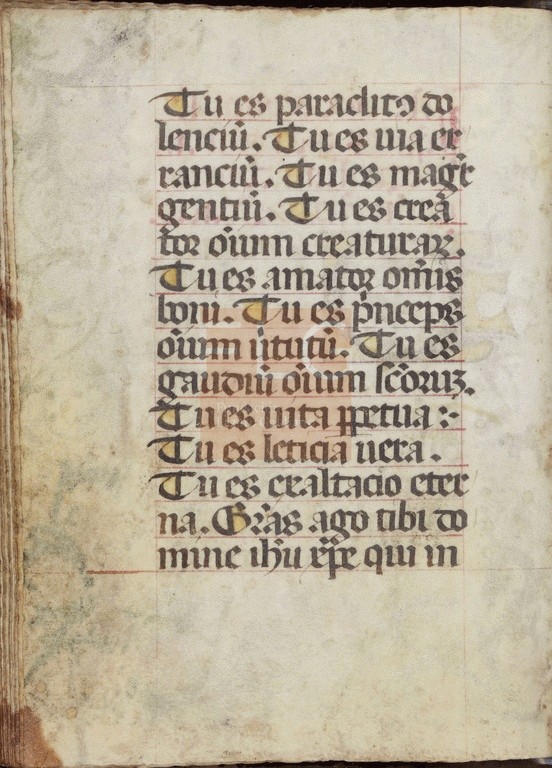 Tu es paraclitꝯ do
lenciū. Tu es uia er
ranciū. Tu es magr̄
gentiū. Tu es creā
tor oīum creaturaꝝ.
Tu es amator om̄is
boni. Tu es p̄nceps
oīum ūtutū. Tu es
gaudiū oīum scōruꝫ.
Tu es uita ꝑpetua :-
Tu es leticia uera .
Tu es exaltacio eter
na. Gr̄as ago tibi do
mine ihū xp̄e qui in